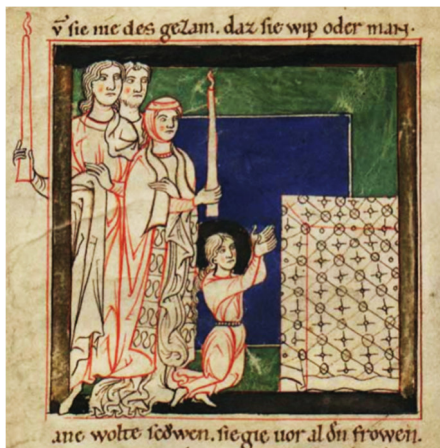 vͦ sie nie des gezam. daz sie wip oder man.
ane wolte seͦwen. sie gie uor al dͤn frowen.